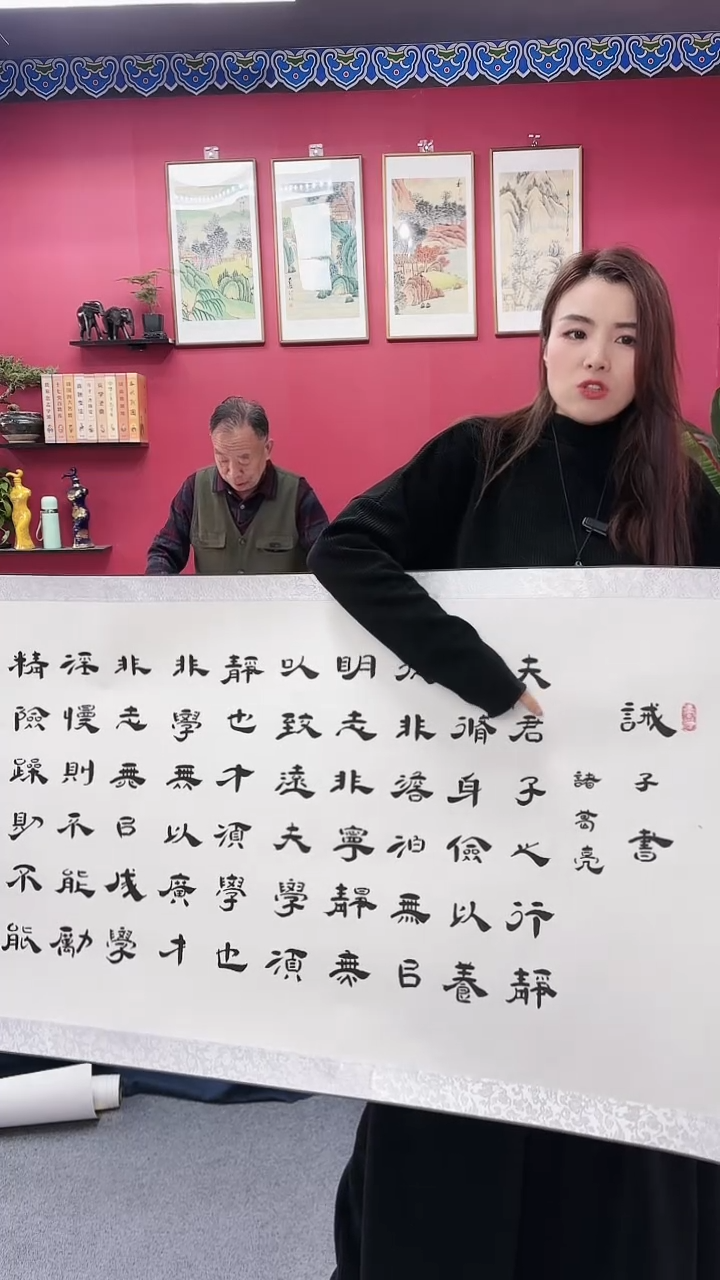 誡子書
諸葛亮
夫君子之行靜
脩身儉以養
非澹泊無㠯
明志非寧靜無
以致遠夫學須
靜也才須學也
非學無以廣才
非志無㠯成學
淫慢則不能勵
精險躁則不能